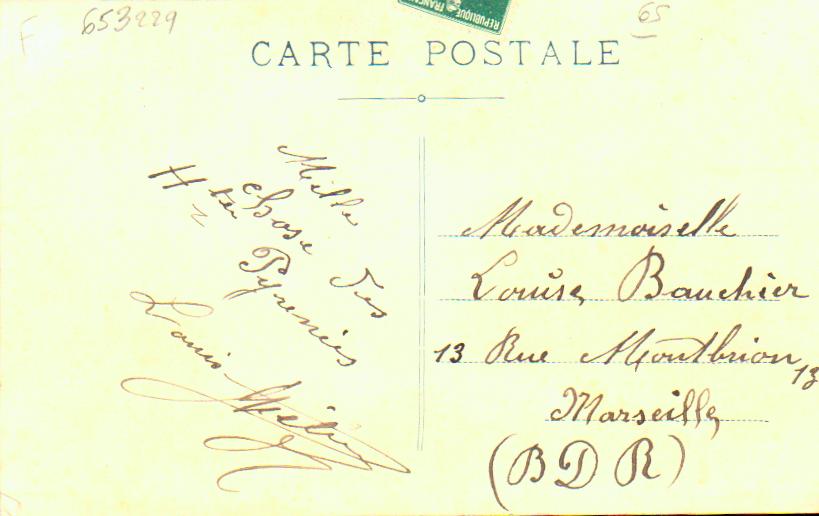 F 653229
65
REPUBLIQUE FRANÇAI
CARTE POSTALE
Mille
chose des
Htes Pyrenées
Louis
Mademoiselle
Louise Bauchier
13 Rue Montbrion 13
Marseille
(BDR)